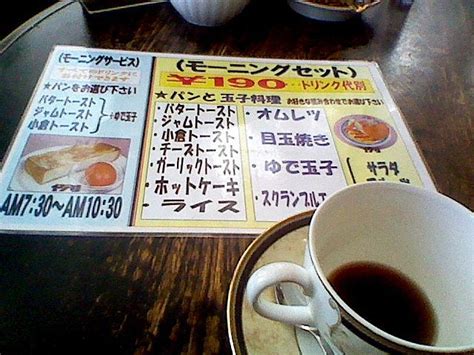 (モーニングサービス)
★パンをお選び下さい
バタートースト
ジャムトースト
小倉トースト
ゆで玉子
AM7:30～AM10:30
(モーニングセット)
¥190…ドリンク代別
★パンと玉子料理
お好きな組み合わせでお選び下さい
・バタートースト
・ジャムトースト
・小倉トースト
・チーズトースト
・ガーリックトースト
・ホットケーキ
・ライス
・オムレツ
・目玉焼き
・ゆで玉子
・スクランブルエ
サラダ